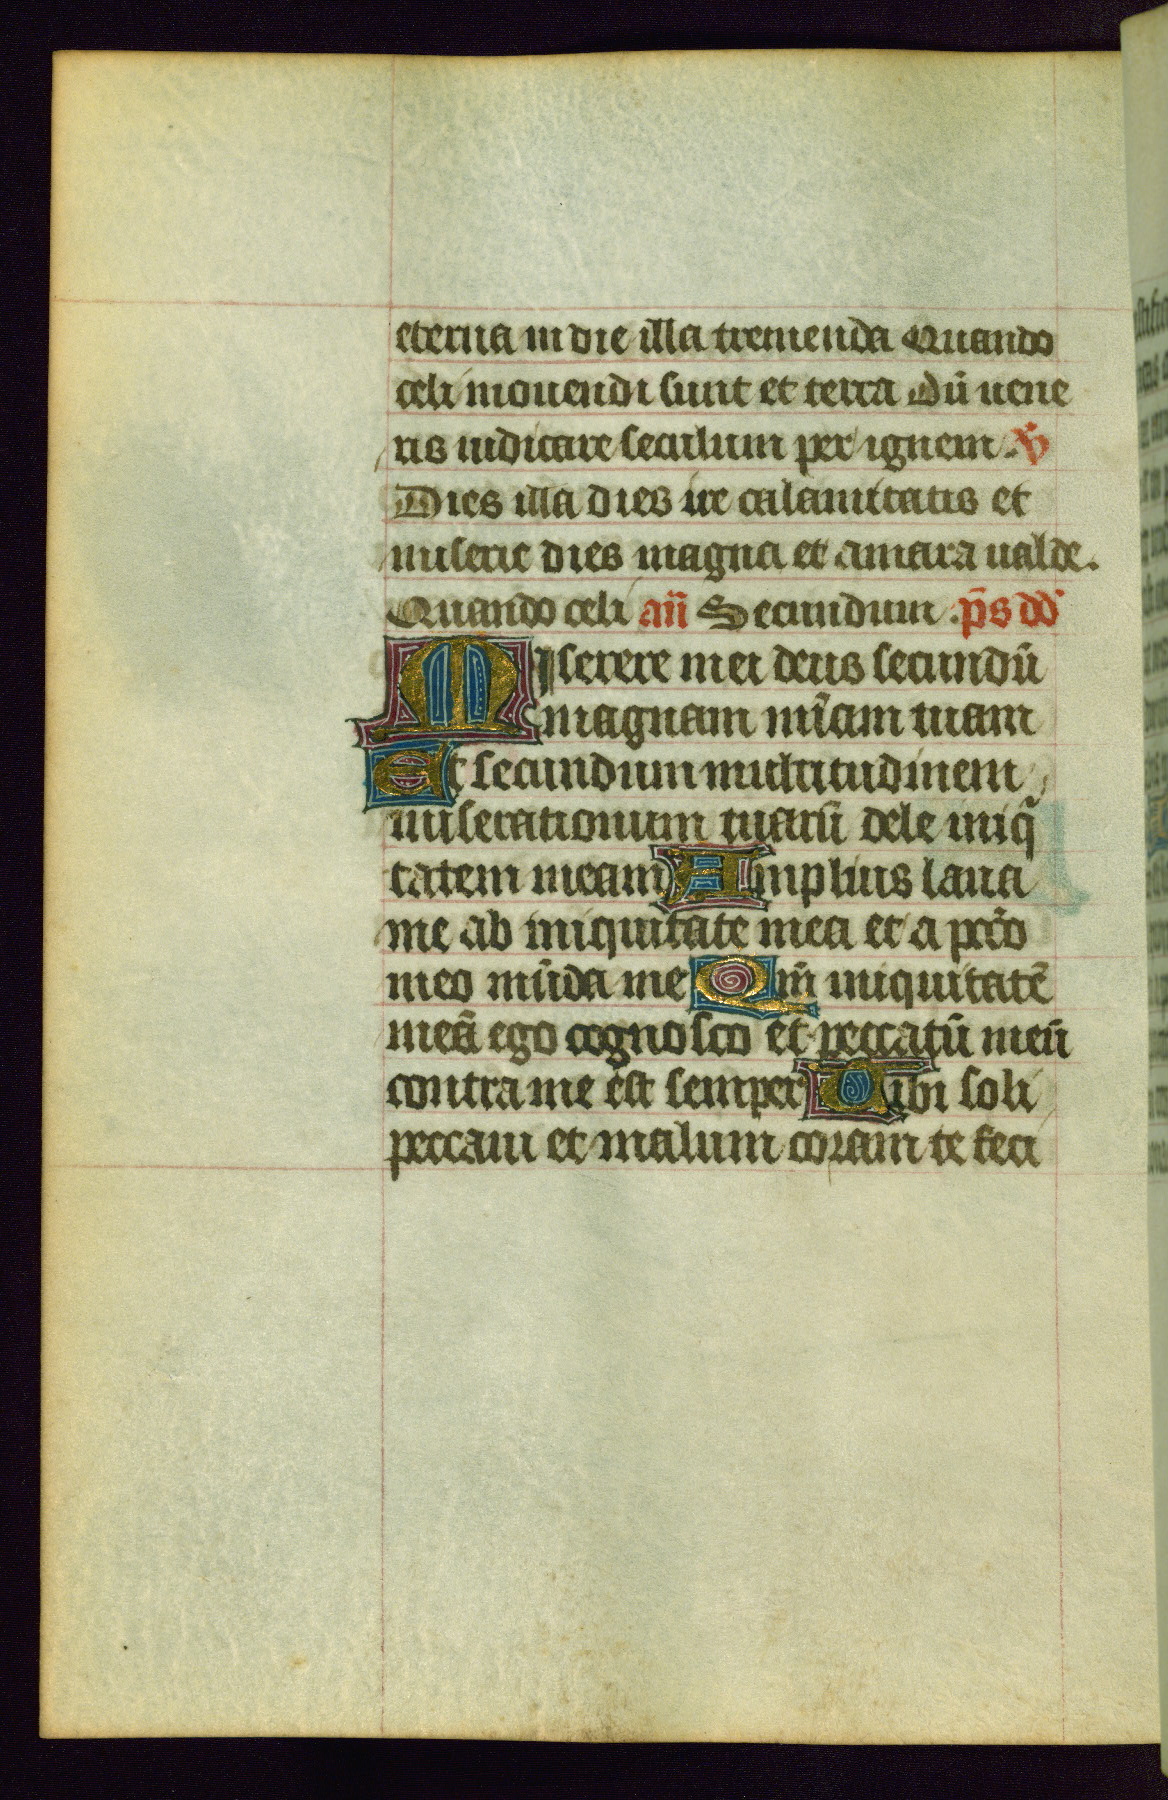 eterna in die illa tremenda Quando
celi mouendi sunt et terra Dū uene
ris iudicare seculum per ignem. V̄
Dies illa dies ire calamitatis et
miserie dies magna et amara ualde.
Quando celi an̄ Secundum. p̄s dd̄
Miserere mei deus secundū
magnam mīam tuam
Et secundum multitudinem
miserationum tuarū dele iniq̄
tatem meam Amplius laua
me ab iniquitate mea et a pcc̄o
meo mūda me Qm̄ iniquitatē
meā ego cognosco et peccatū meū
contra me est semper Tibi soli
peccaui et malum coram te feci